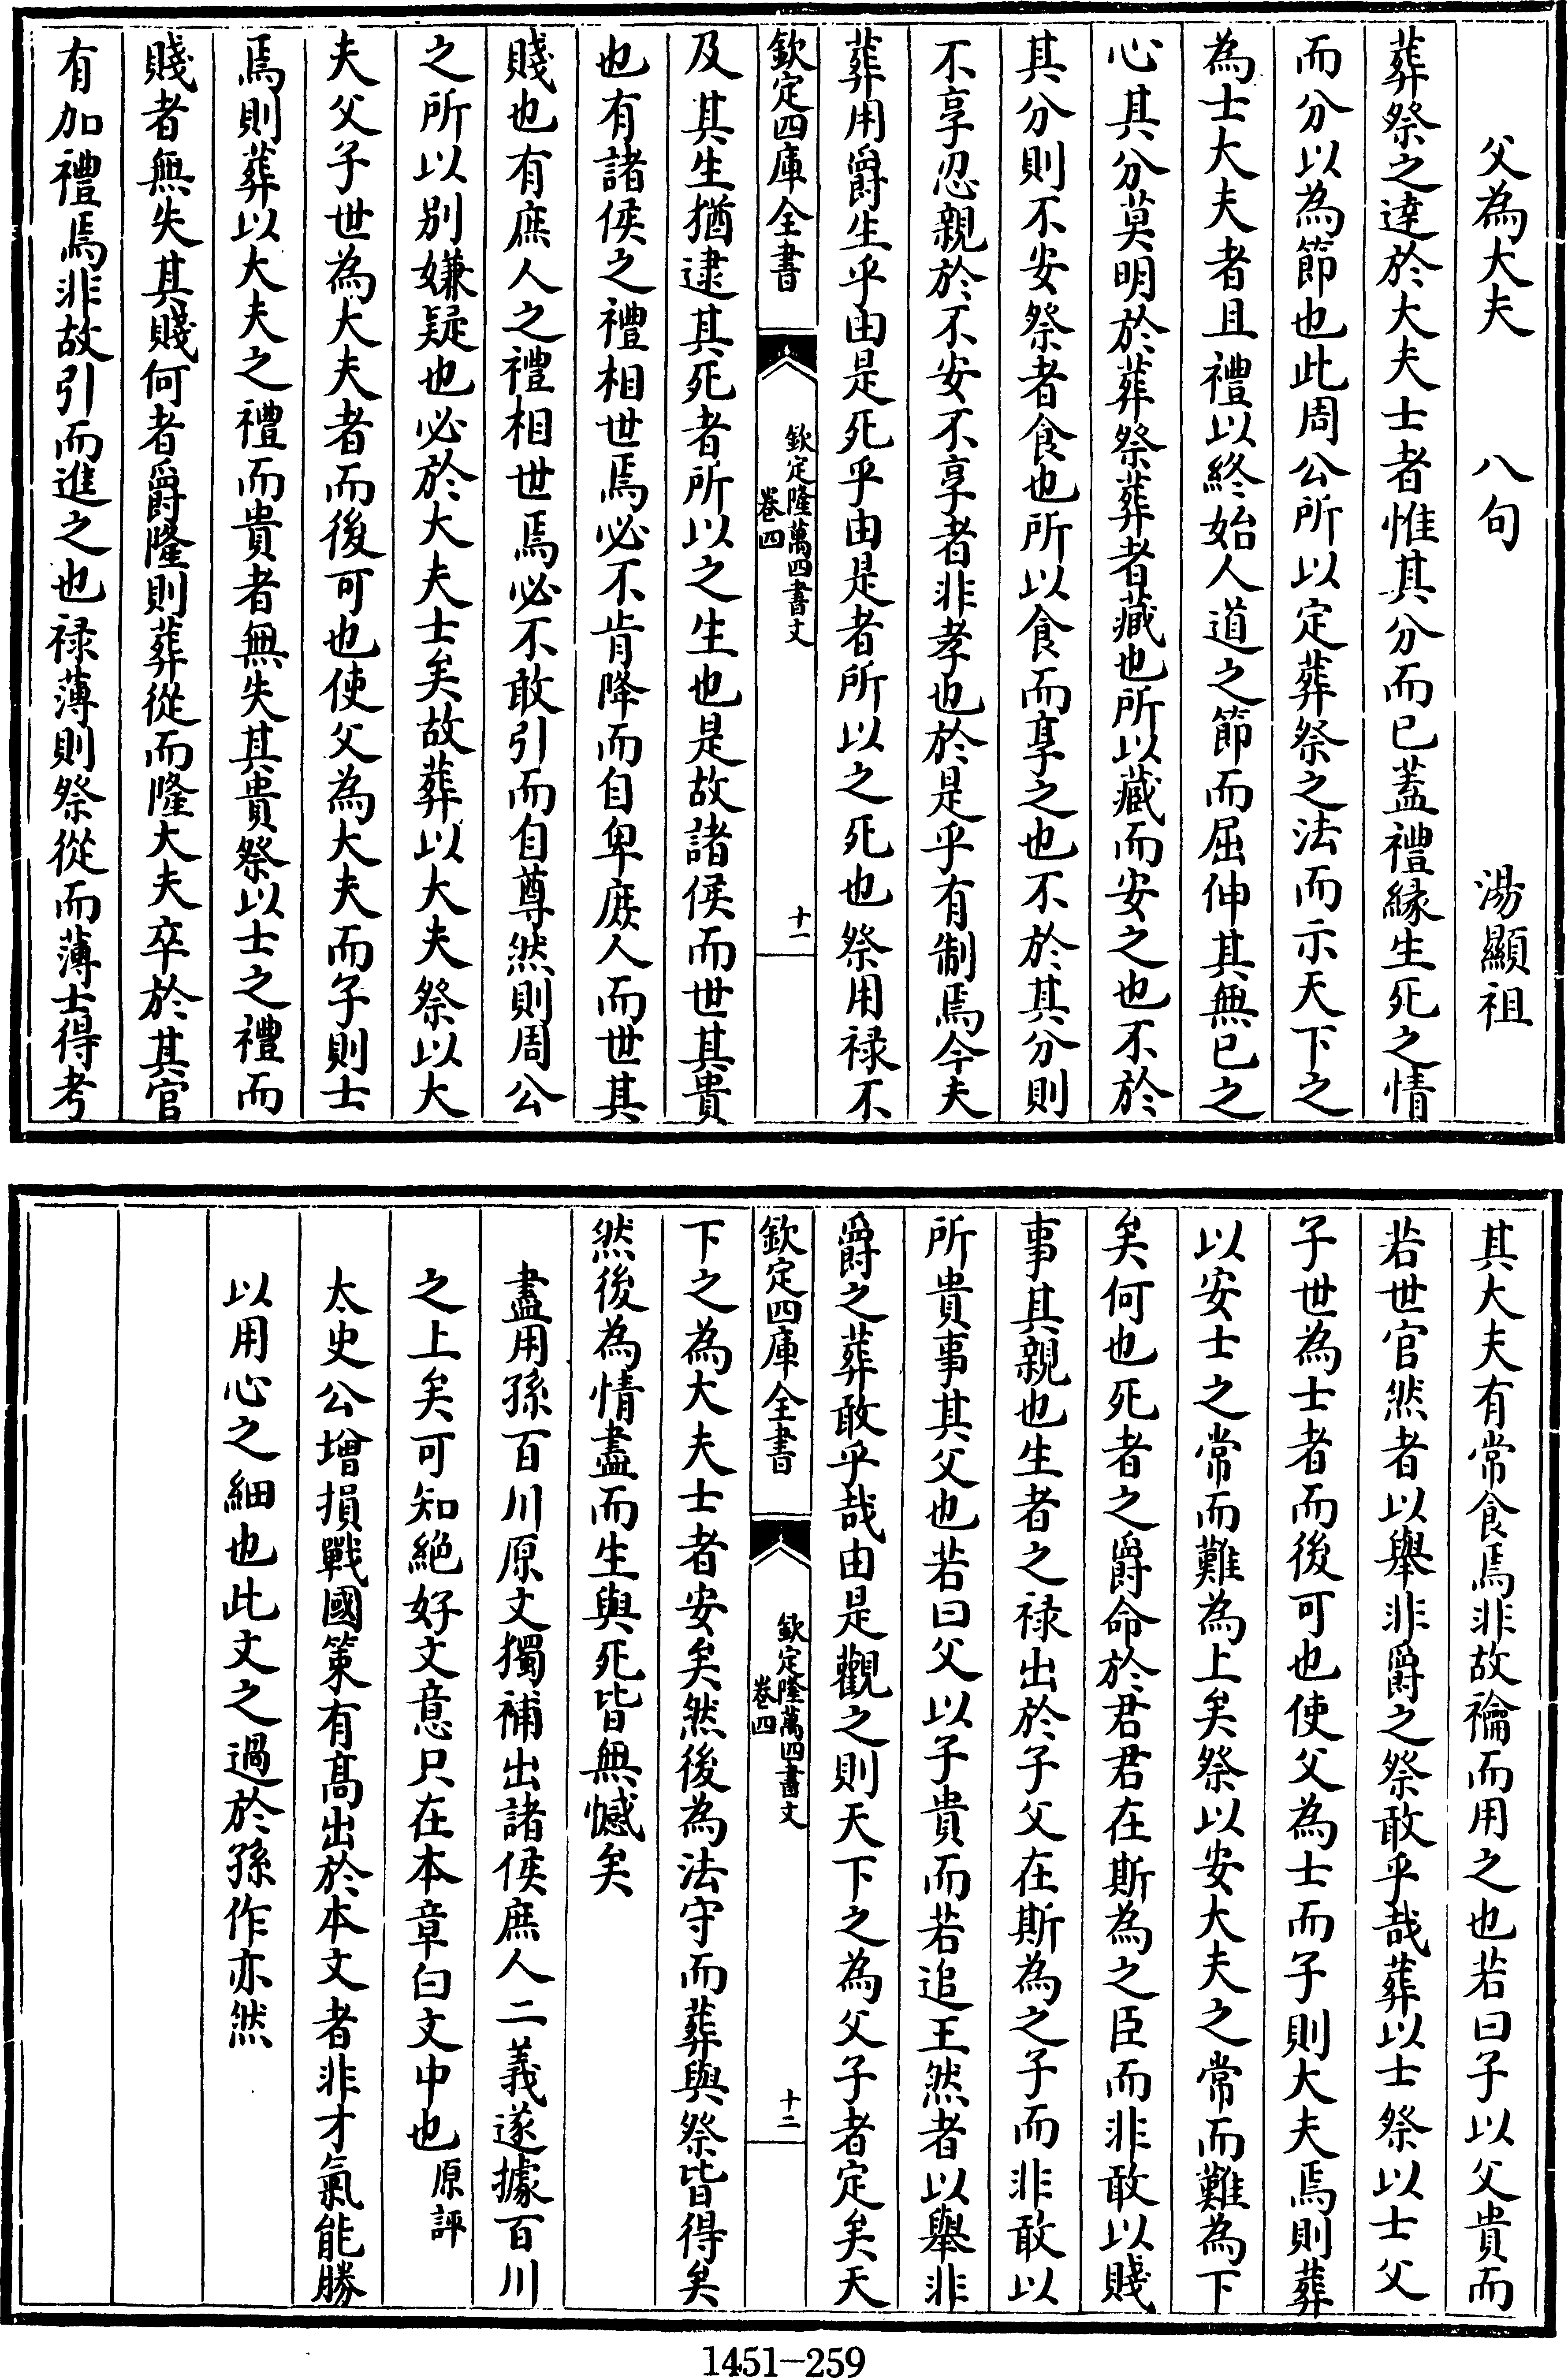 父為大夫　八句　湯顯祖
葬祭之達於大夫士者惟其分而已蓋禮緣生死之情
而分以為節也此周公所以定葬祭之法而示天下之
為士大夫者且禮以終始人道之節而屈伸其無已之
心其分莫明於葬祭葬者藏也所以藏而安之也不於
其分則不安祭者食也所以食而享之也不於其分則
不享忍親於不安不享者非孝也於是乎有制焉今夫
葬用爵生乎由是死乎由是者所以之死也祭用祿不
欽定四庫全書
欽定隆萬四書文
卷四
十一
及其生猶逮其死者所以之生也是故諸侯而世其貴
也有諸侯之禮相世焉必不肯降而自卑庶人而世其
賤也有庶人之禮相世焉必不敢引而自尊然則周公
之所以別嫌疑也必於大夫士矣故葬以大夫祭以大
夫父子世為大夫者而後可也使父為大夫而子則士
焉則葬以大夫之禮而貴者無失其貴祭以士之禮而
賤者無失其賤何者爵隆則葬從而隆大夫卒於其官
有加禮焉非故引而進之也祿薄則祭從而薄士得考
其大夫有常食焉非故禴而用之也若曰子以父貴而
若世官然者以舉非爵之祭敢乎哉葬以士祭以士父
子世為士者而後可也使父為士而子則大夫焉則葬
以安士之常而難為上矣祭以安大夫之常而難為下
矣何也死者之爵命於君君在斯為之臣而非敢以賤
事其親也生者之祿出於子父在斯為之子而非敢以
所貴事其父也若曰父以子貴而若追王然者以舉非
爵之葬敢乎哉由是觀之則天下之為父子者定矣天
欽定四庫全書
欽定隆萬四書文
卷四
十二
下之為大夫士者安矣然後為法守而葬與祭皆得矣
然後為情盡而生與死皆無憾矣
盡用孫百川原文獨補出諸侯庶人二義遂據百川
之上矣可知絕好文意只在本章白文中也原評
太史公增損戰國策有高出於本文者非才氣能勝
以用心之細也此文之過於孫作亦然
1451-259